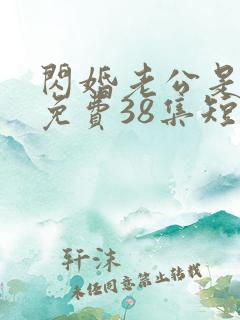 閃婚老公是
免費38集短
轩沫
未经同意禁止转载